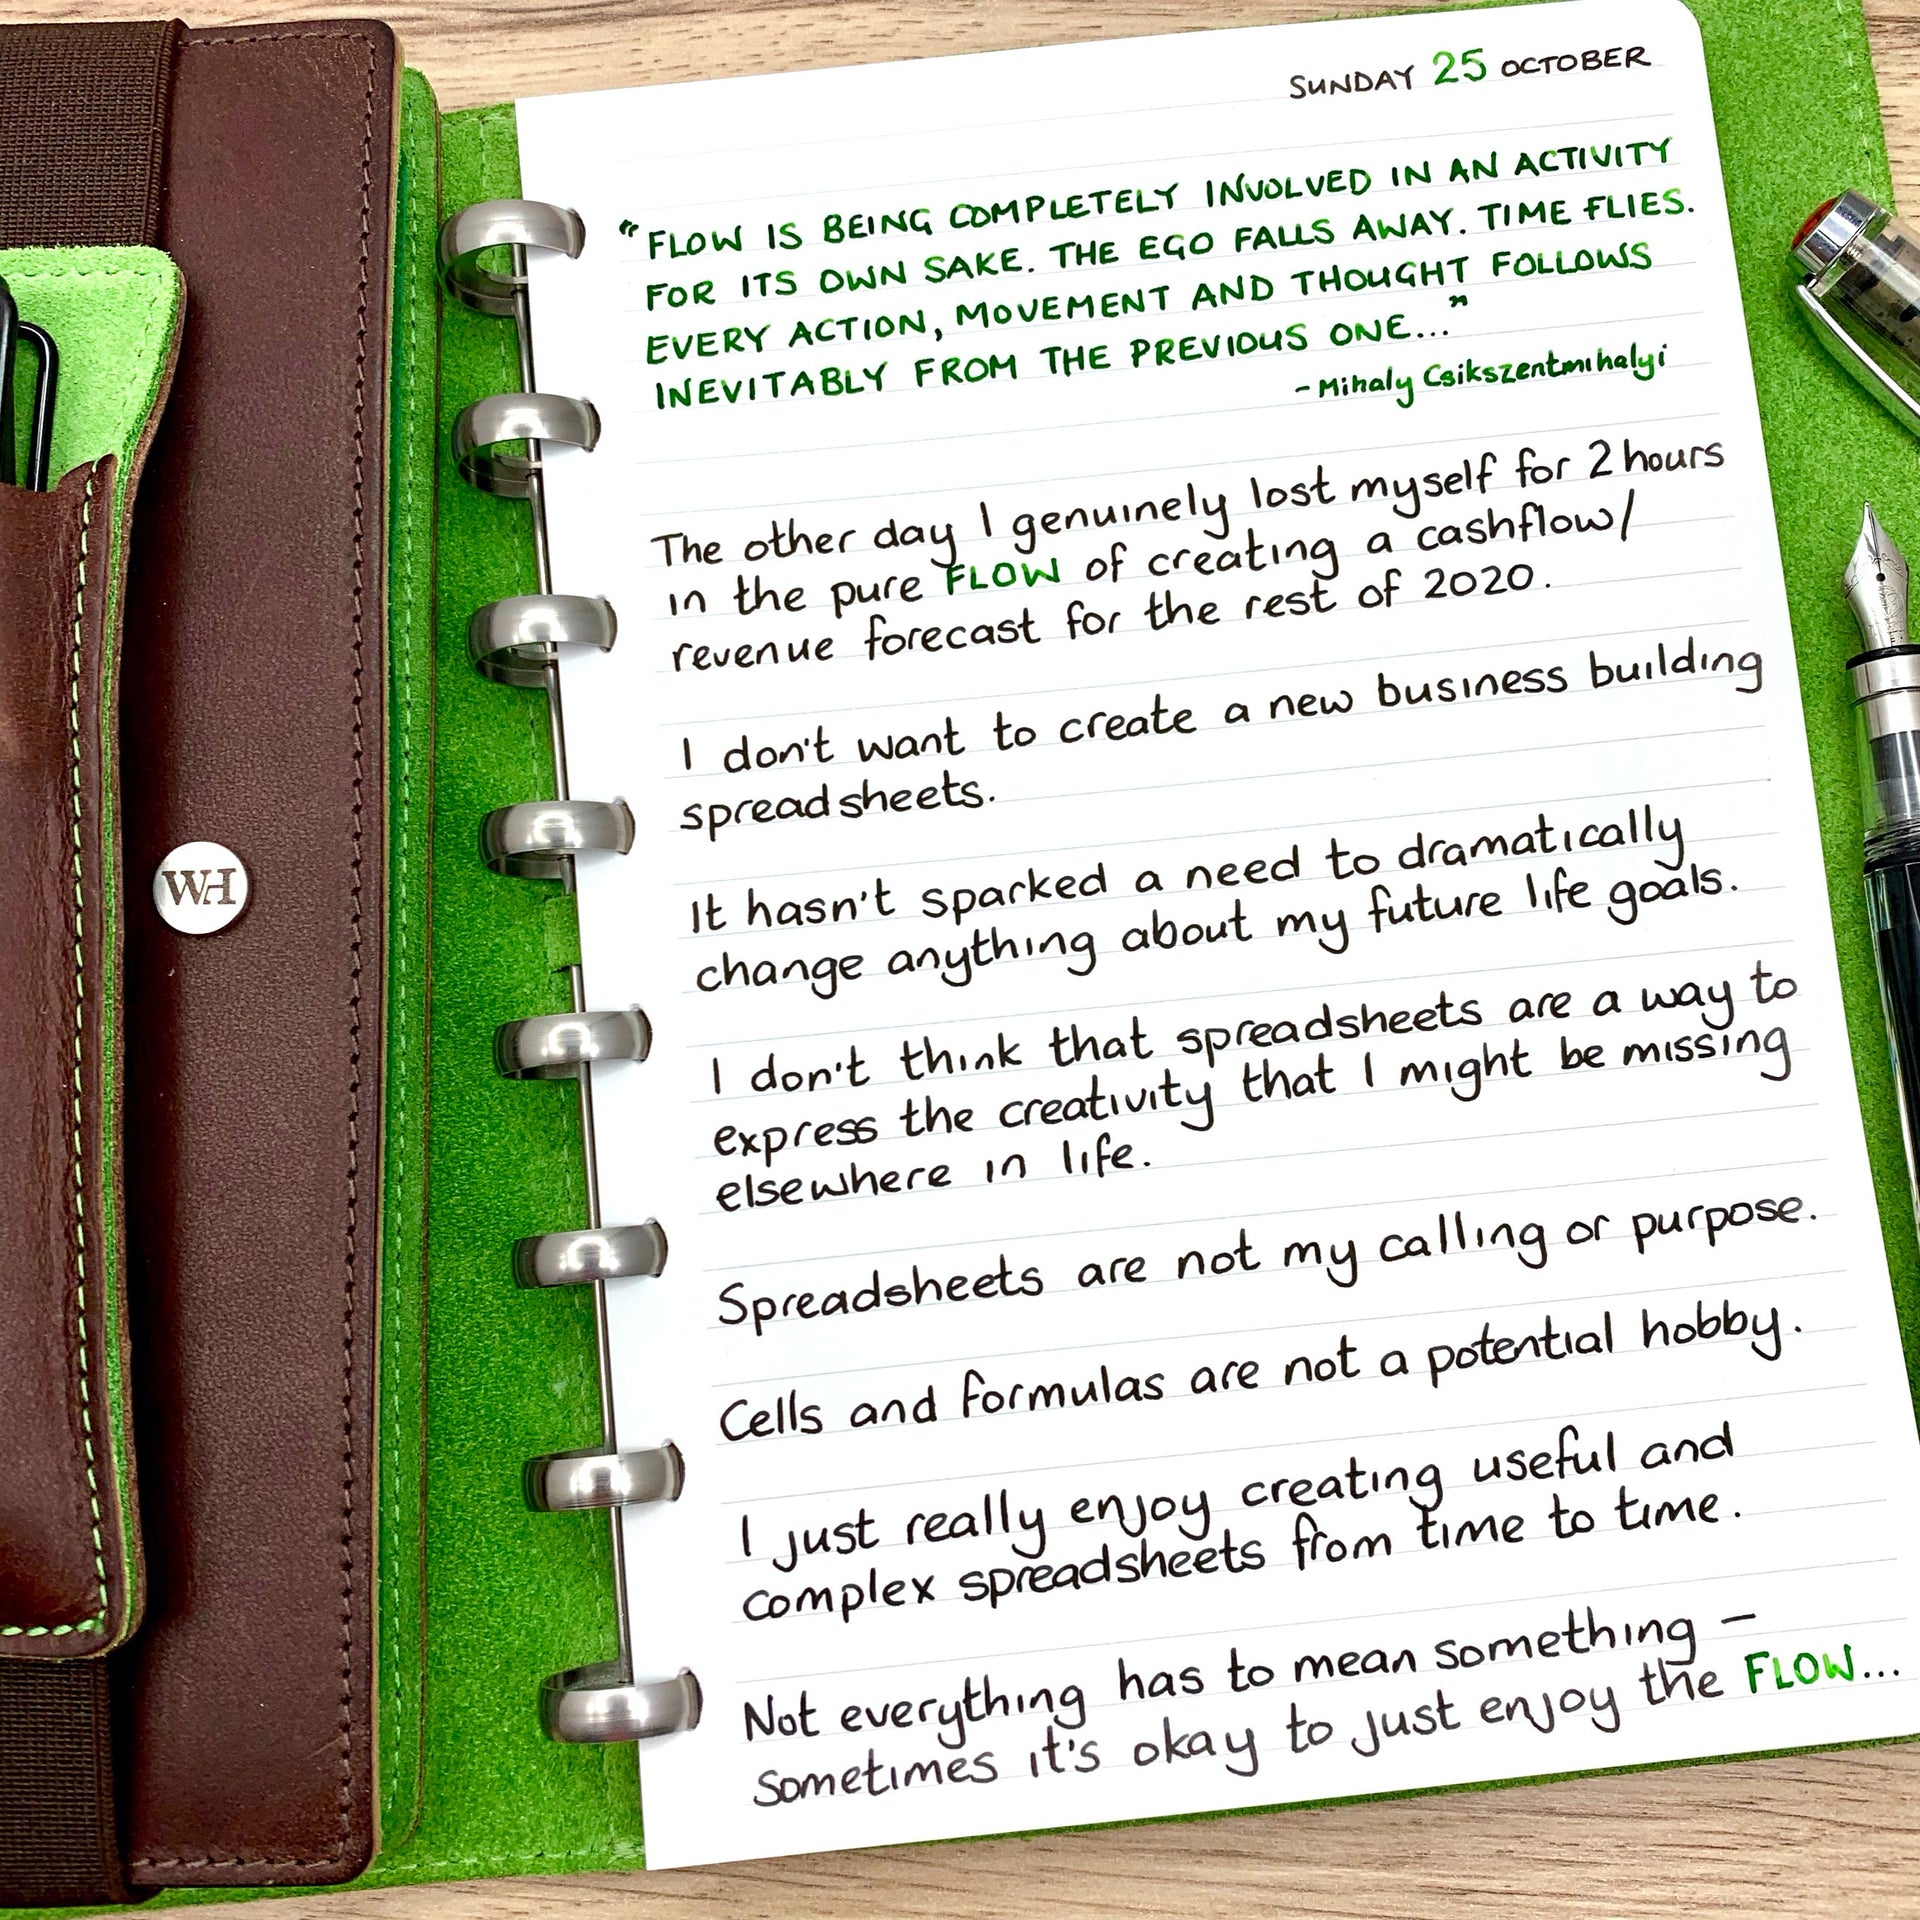 SUNDAY 25 OCTOBER
"FLOW IS BEING COMPLETELY INVOLVED IN AN ACTIVITY
FOR ITS OWN SAKE. THE EGO FALLS AWAY. TIME FLIES.
EVERY ACTION, MOVEMENT AND THOUGHT FOLLOWS
INEVITABLY FROM THE PREVIOUS ONE..."
- Mihaly Csikszentmihalyi
The other day I genuinely lost myself for 2 hours
in the pure FLOW of creating a cashflow/
revenue forecast for the rest of 2020.
I don't want to create a new business building
spreadsheets.
It hasn't sparked a need to dramatically
change anything about my future life goals.
I don't think that spreadsheets are a way to
express the creativity that I might be missing
elsewhere in life.
Spreadsheets are not my calling or purpose.
Cells and formulas are not a potential hobby.
I just really enjoy creating useful and
complex spreadsheets from time to time.
Not everything has to mean something –
sometimes it's okay to just enjoy the FLOW...
WH